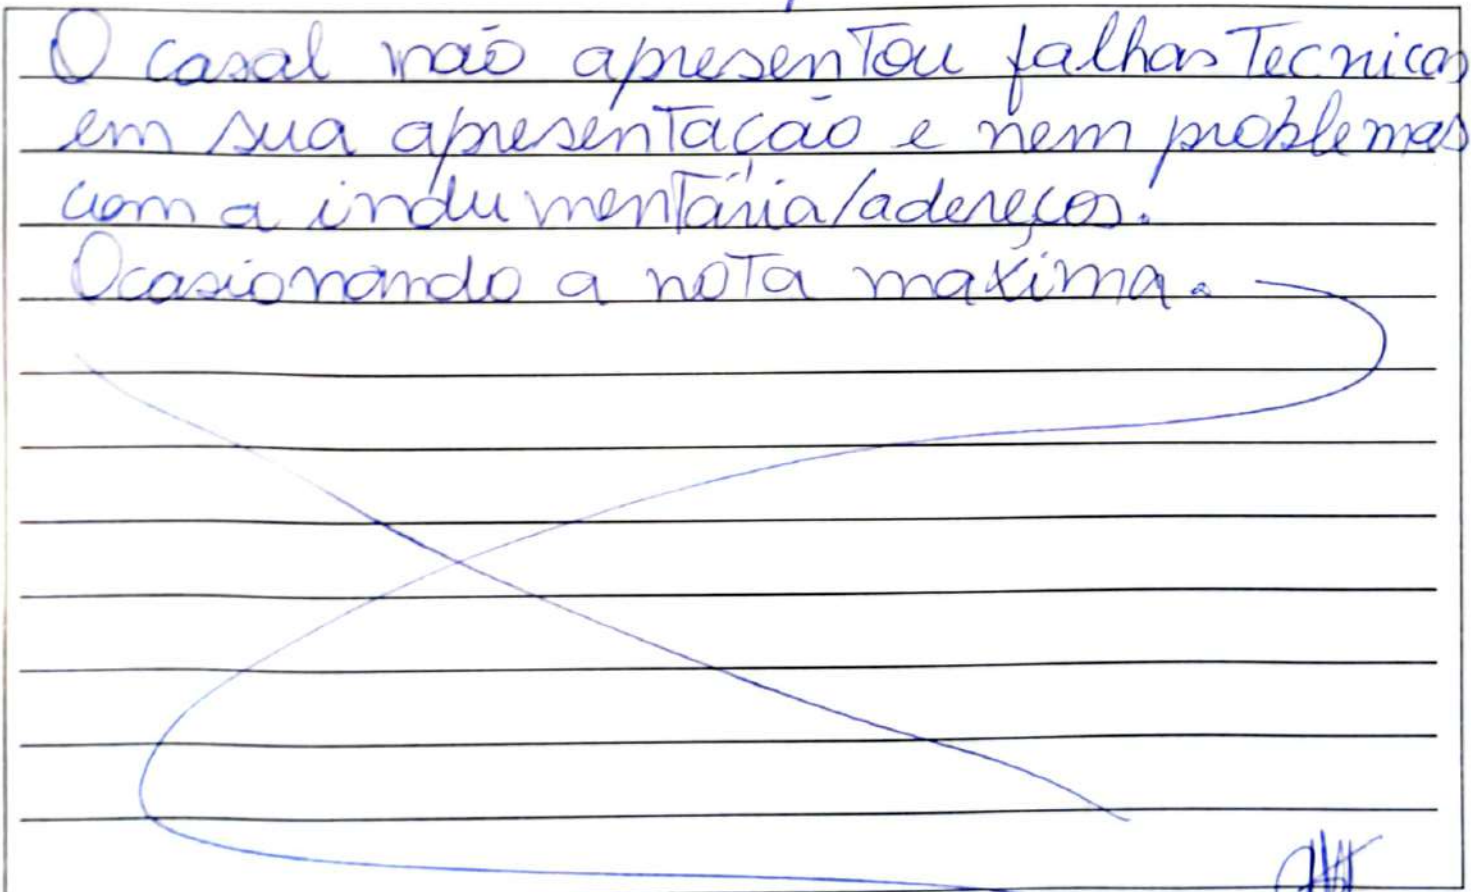 O casal não apresentou falhas tecnicas
em sua apresentação e nem problemas
com a indumentária/adereços.
Ocasionando a nota maxima.